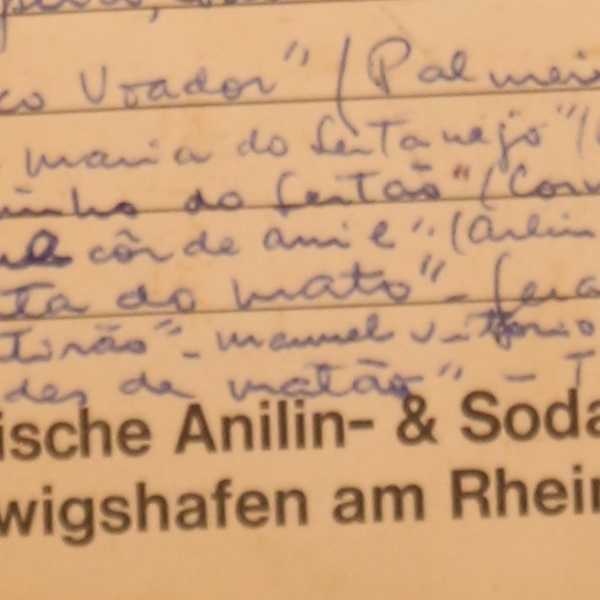 co Voador" / (Palmei
maria do Sertanejo" (
inho do Sertão" (Cor
côr de anil". (
ta do mato" -
tirão" - manuel vitório
des de matão" - T
ische Anilin- & Soda
wigshafen am Rhein